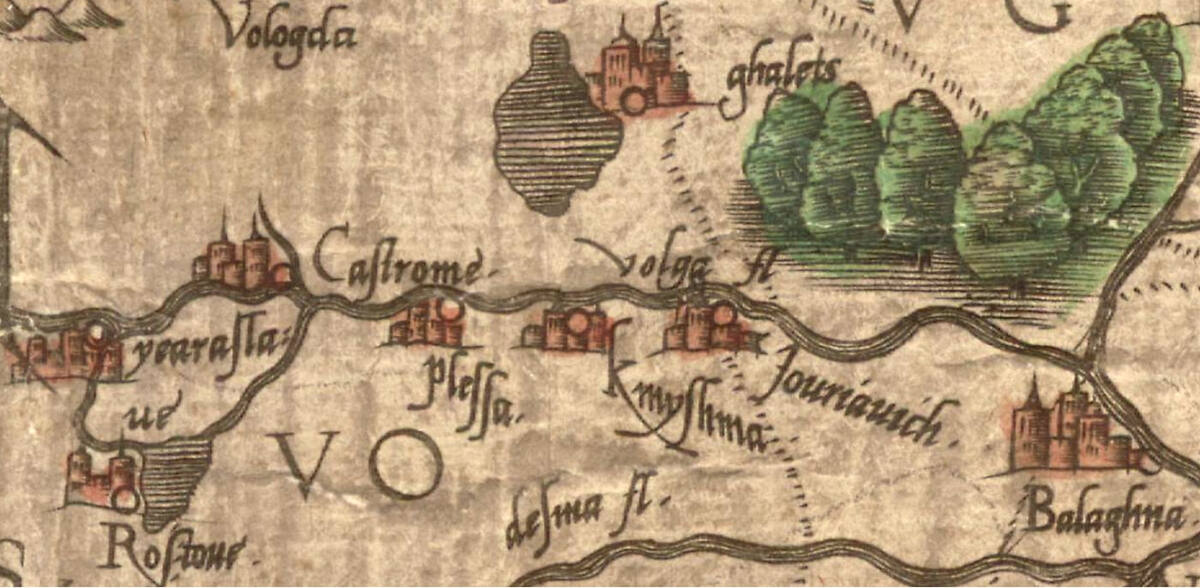 Vologda
V G
ghalets
Caſtrome
volga fl
yearaſla:
ue
pleſſa.
kmyſhma
Jouriauich.
VO
deſma fl.
Balaghna
Roſtoue.
S